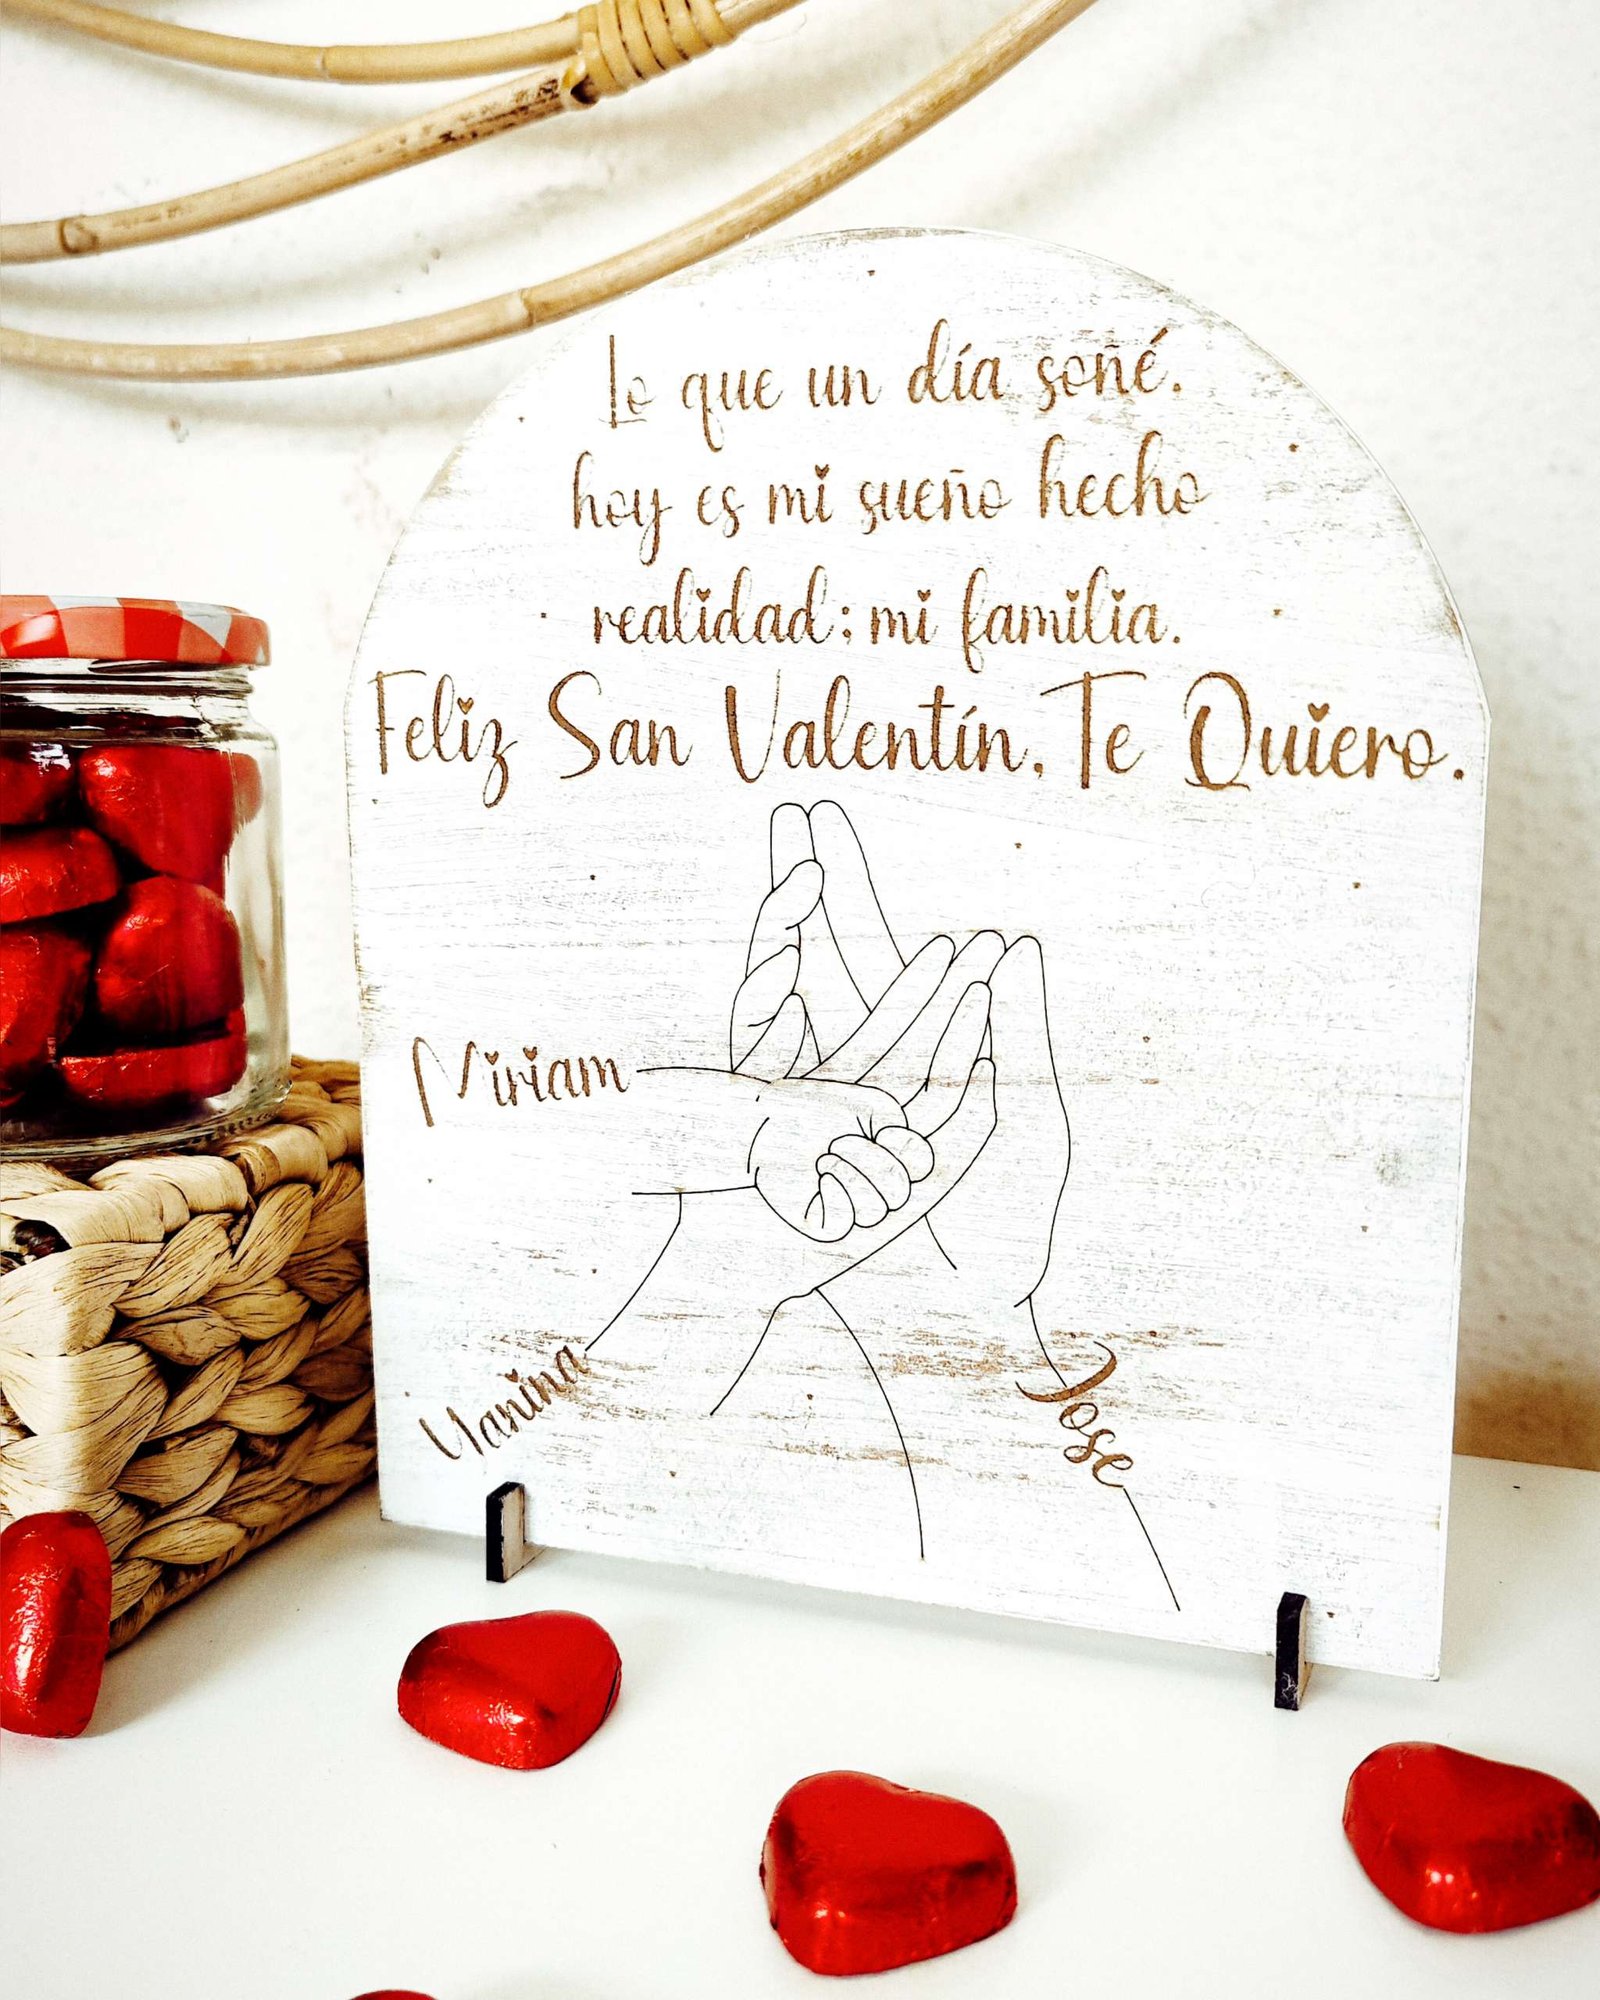 Lo que un día soñé.
hoy es mi sueño hecho
realidad: mi familia.
Feliz San Valentín. Te Quiero.
Miriam
Yanina
Jose